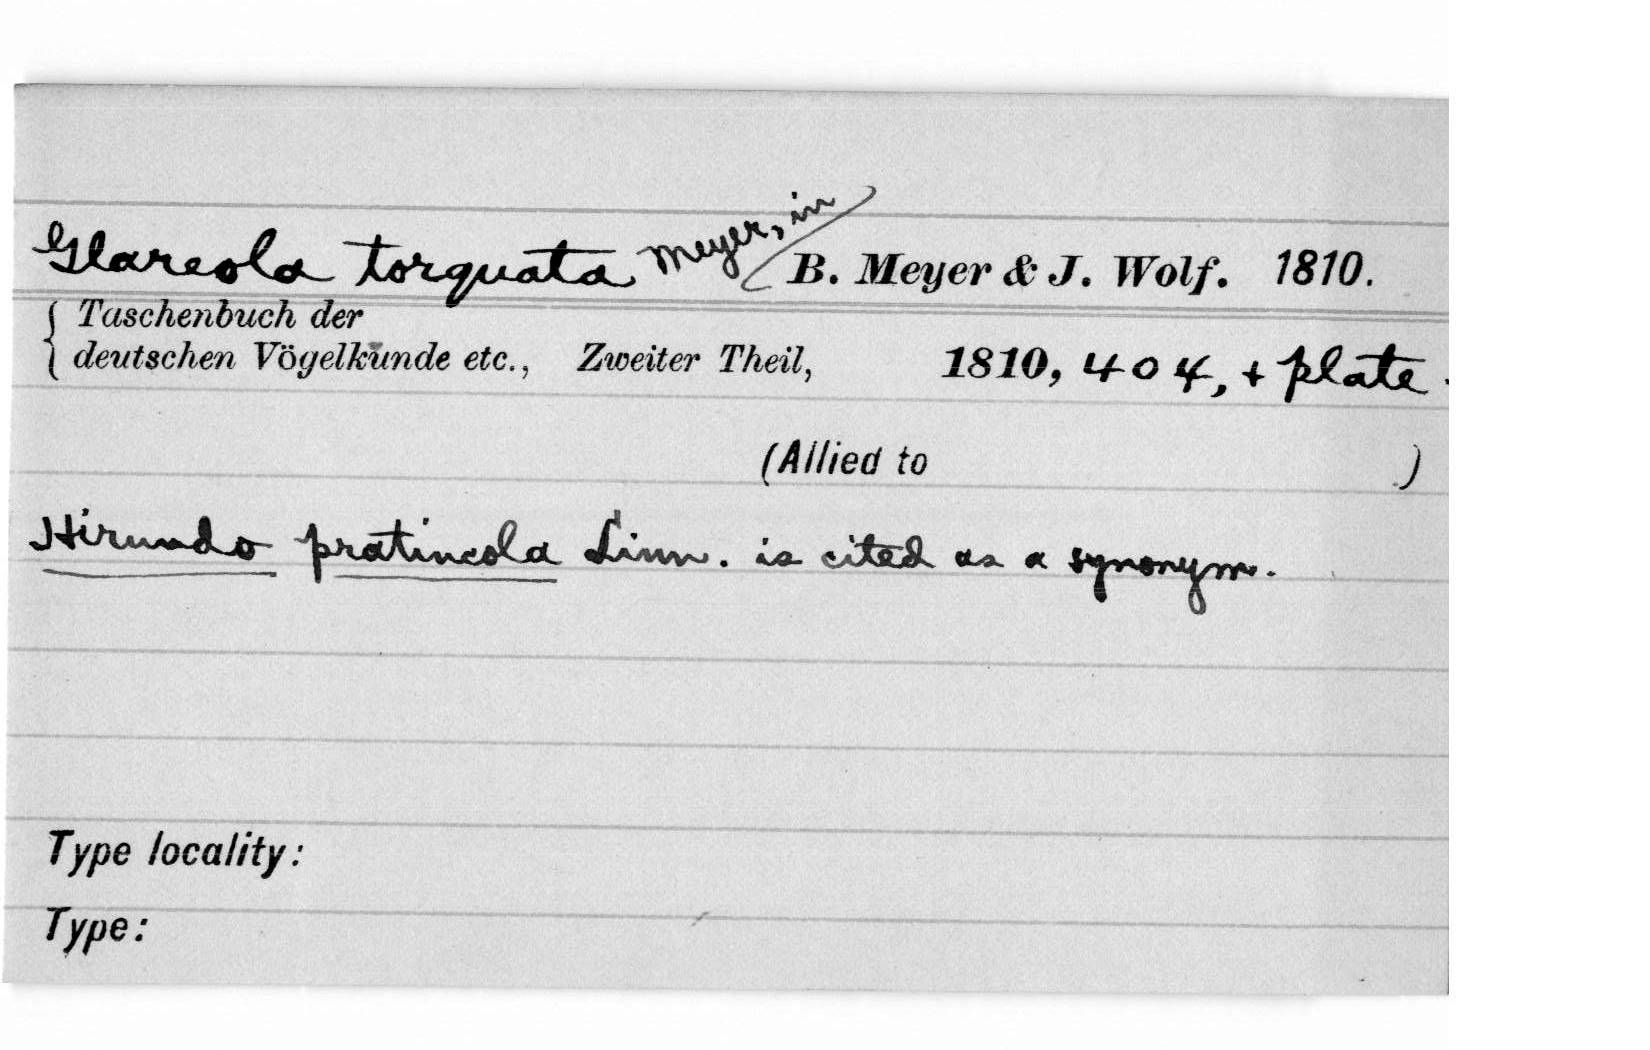 Glareola torquata Meyer, in B. Meyer & J. Wolf. 1810.
Taschenbuch der
deutschen Vögelkunde etc., Zweiter Theil, 1810, 404, + plate.
(Allied to )
Hirundo pratincola Linn. is cited as a synonym.
Type locality:
Type: